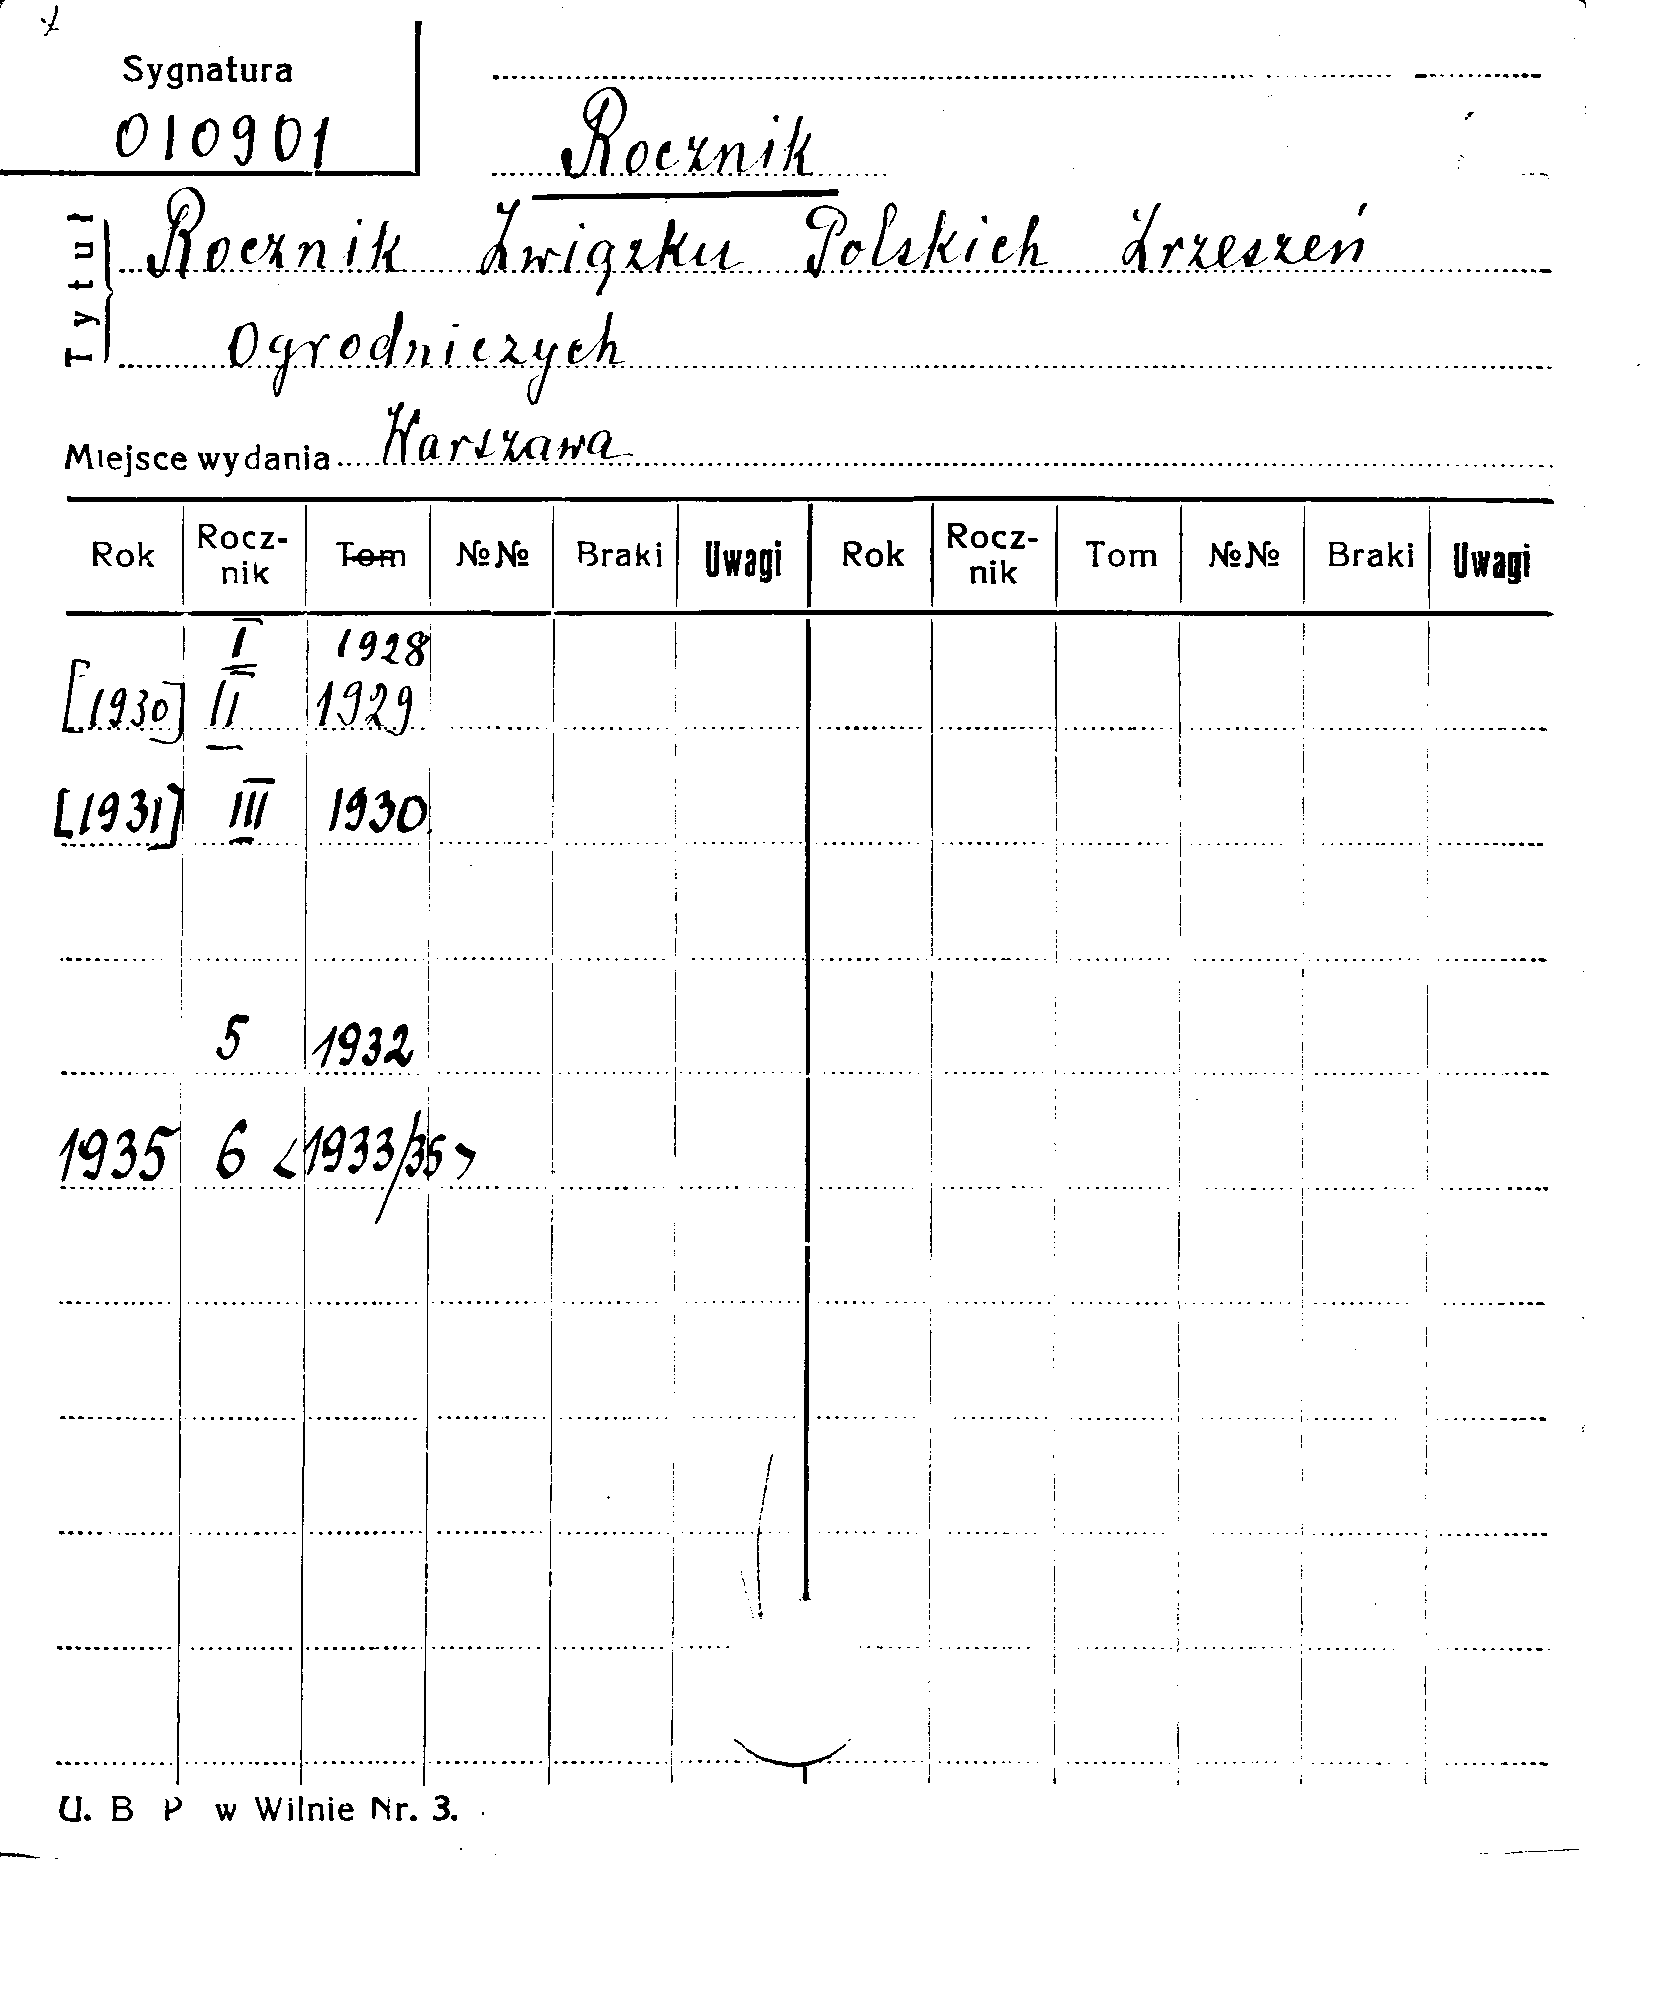 Sygnatura
010901
Rocznik
Tytuł
Rocznik Związku Polskich Zrzeszeń
Ogrodniczych
Miejsce wydania Warszawa
Rok Rocz-nik Tom №№ Braki Uwagi Rok Rocz-nik Tom №№ Braki Uwagi
I 1928
[1930] II 1929
[1931] III 1930
5 1932
1935 6 <1933/35>
U. B P w Wilnie Nr. 3.